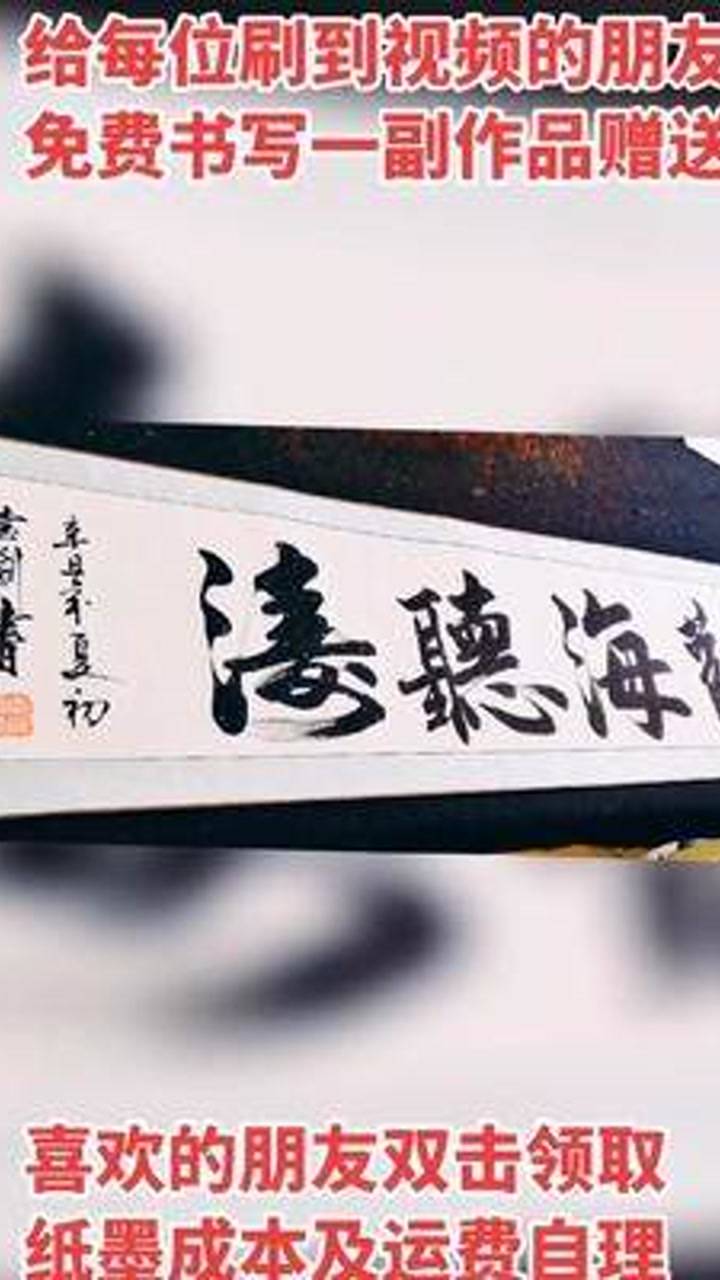 给每位刷到视频的朋友
免费书写一副作品赠送
海聽濤
夏初
喜欢的朋友双击领取
纸墨成本及运费自理